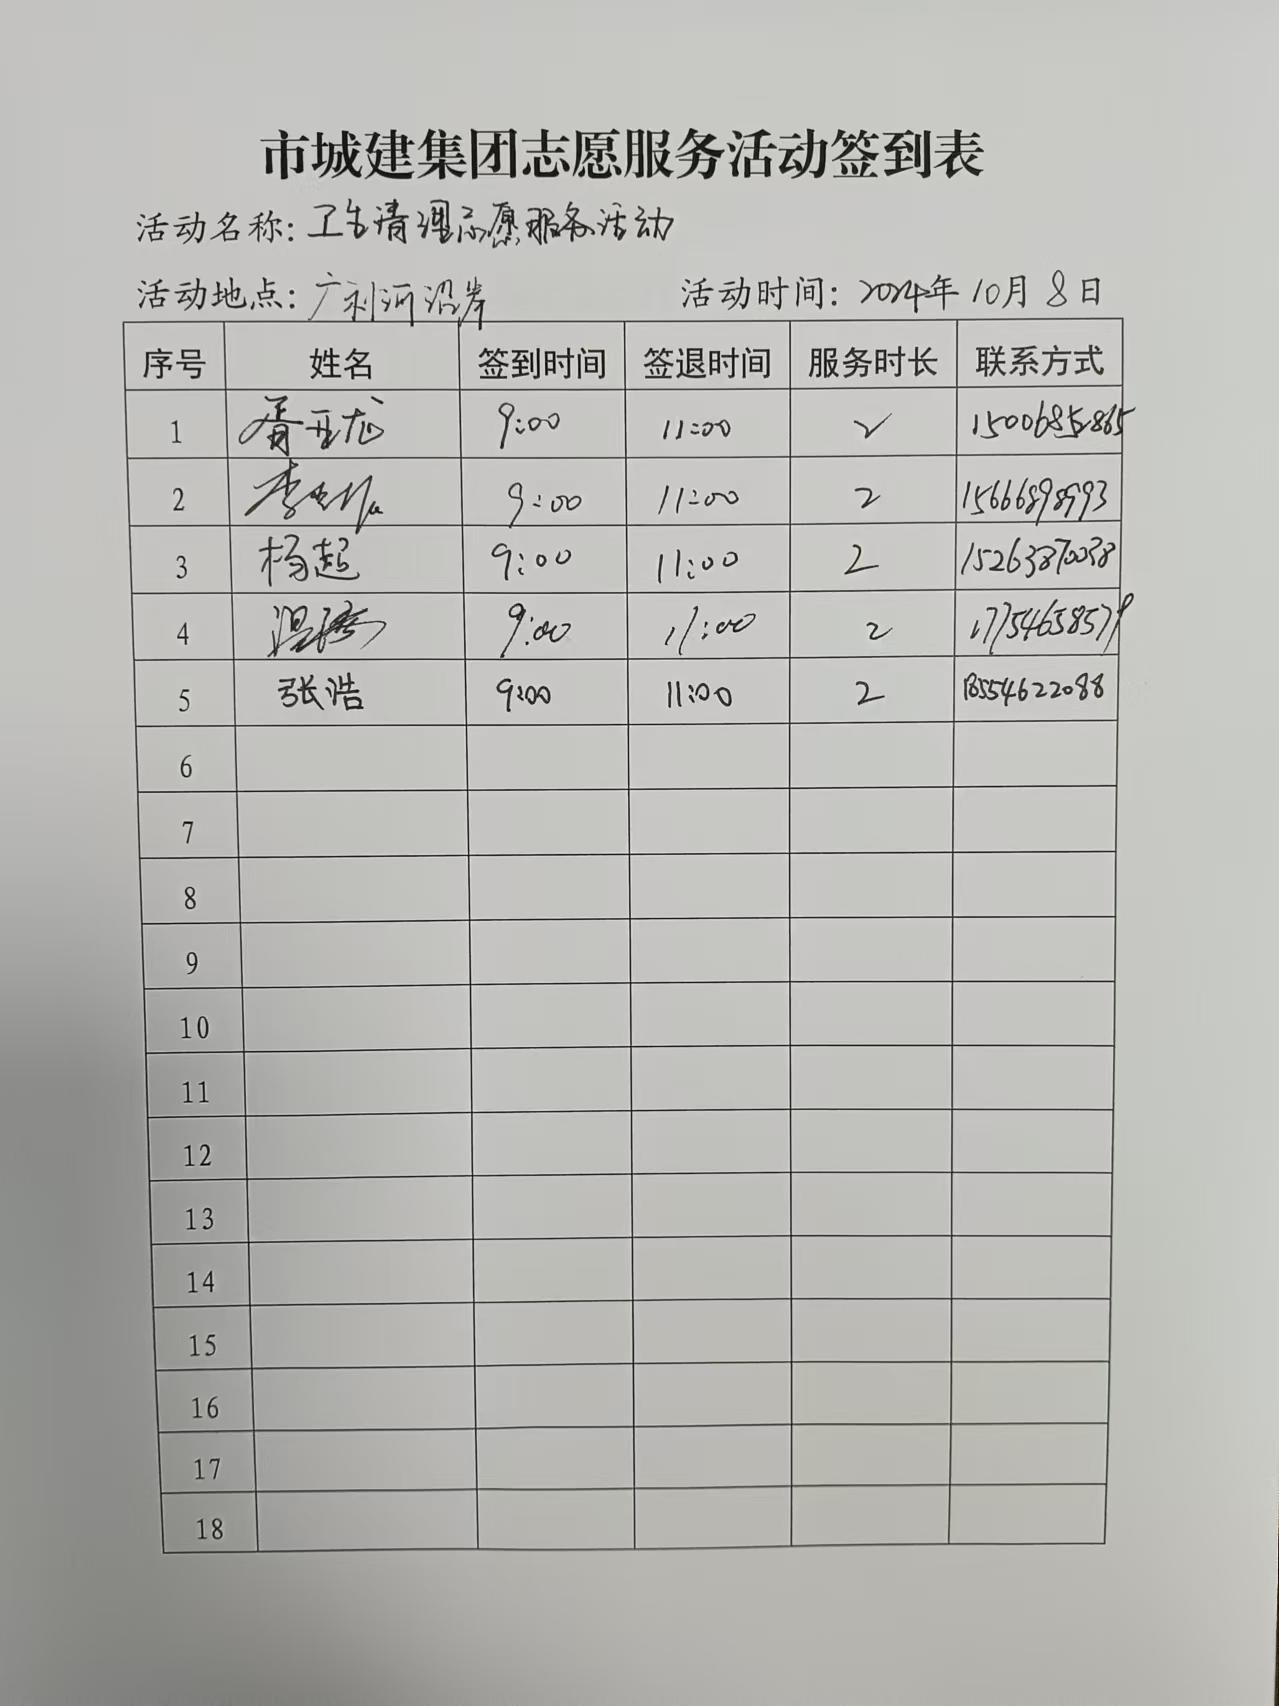 市城建集团志愿服务活动签到表
活动名称: 卫生清理志愿服务活动
活动地点: 广利河沿岸 活动时间: 2024年10月8日
序号 姓名 签到时间 签退时间 服务时长 联系方式
1 胥亚龙 9:00 11:00 2
2 李 9:00 11:00 2 15666898993
3 杨超 9:00 11:00 2 15263870038
4 温 9:00 11:00 2 17754658579
5 张浩 9:00 11:00 2 18554622088
6
7
8
9
10
11
12
13
14
15
16
17
18